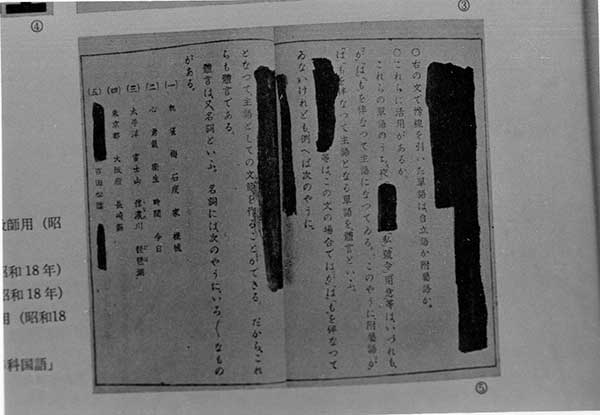 ③
④
○右の文で傍線を引いた單語は自立語か附屬語か。
○これらに活用があるか。
これらの單語のうち、夜
私號令用意等は、いづれも、
が、は、もを伴なつて主語になつてゐる。このやうに、附屬語が、
は、もを伴なつて主語となる單語を體言といふ。
等は、この文の場合では、が、は、もを伴なつて
ゐないけれども、例へば次のやうに、
となつて主語としての文節を作ることができる。だから、これ
らも體言である。
體言は又名詞といふ。名詞には、次のやうに、いろ〳〵なもの
がある。
(一) 机 梅 石炭 家 機械
(二) 心 勇氣 衞生 時間 今日
(三) 太平洋 富士山 信濃川 琵琶湖
(四) 東京都 大阪府 長崎縣
(五) 吉田松陰
⑤
教師用（昭
昭和18年）
昭和18年）
用（昭和18
科国語」